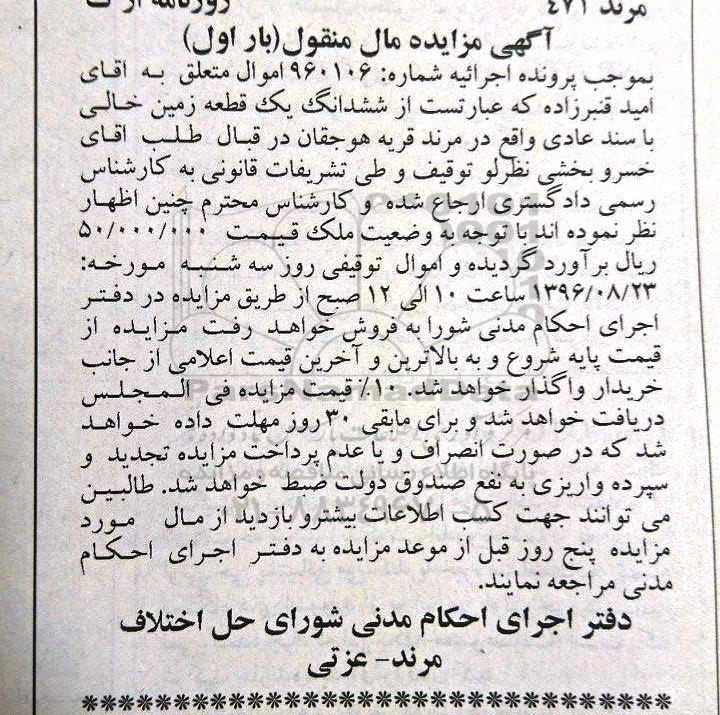 مرند ٤٧١ روزنامه
آگهی مزایده مال منقول(بار اول)
بموجب پرونده اجرائیه شماره: ۹۶۰۱۰۶ اموال متعلق به اقای
امید قنبرزاده که عبارتست از ششدانگ یک قطعه زمین خالی
با سند عادی واقع در مرند قریه هوجقان در قبال طلب اقای
خسرو بخشی نظرلو توقیف و طی تشریفات قانونی به کارشناس
رسمی دادگستری ارجاع شده و کارشناس محترم چنین اظهار
نظر نموده اند با توجه به وضعیت ملک قیمت ۵۰/۰۰۰/۰۰۰
ریال برآورد گردیده و اموال توقیفی روز سه شنبه مورخه:
۱۳۹۶/۰۸/۲۳ ساعت ۱۰ الی ۱۲ صبح از طریق مزایده در دفتر
اجرای احکام مدنی شورا به فروش خواهد رفت مزایده از
قیمت پایه شروع و به بالاترین و آخرین قیمت اعلامی از جانب
خریدار واگذار خواهد شد. ۱۰٪ قیمت مزایده فی المجلس
دریافت خواهد شد و برای مابقی ۳۰ روز مهلت داده خواهد
شد که در صورت انصراف و یا عدم پرداخت مزایده تجدید و
سپرده واریزی به نفع صندوق دولت ضبط خواهد شد. طالبین
می توانند جهت کسب اطلاعات بیشترو بازدید از مال مورد
مزایده پنج روز قبل از موعد مزایده به دفتر اجرای احکام
مدنی مراجعه نمایند.
دفتر اجرای احکام مدنی شورای حل اختلاف
مرند- عزتی